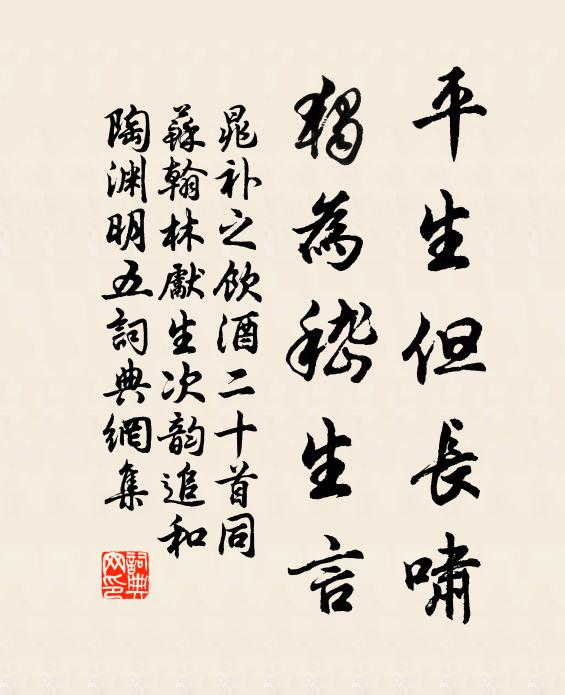 平生但長嘯
獨為嵇生言
晁补之飲酒二十首同
蘇翰林獻生次韵追和
陶渊明五詞典網集
詞典
网印